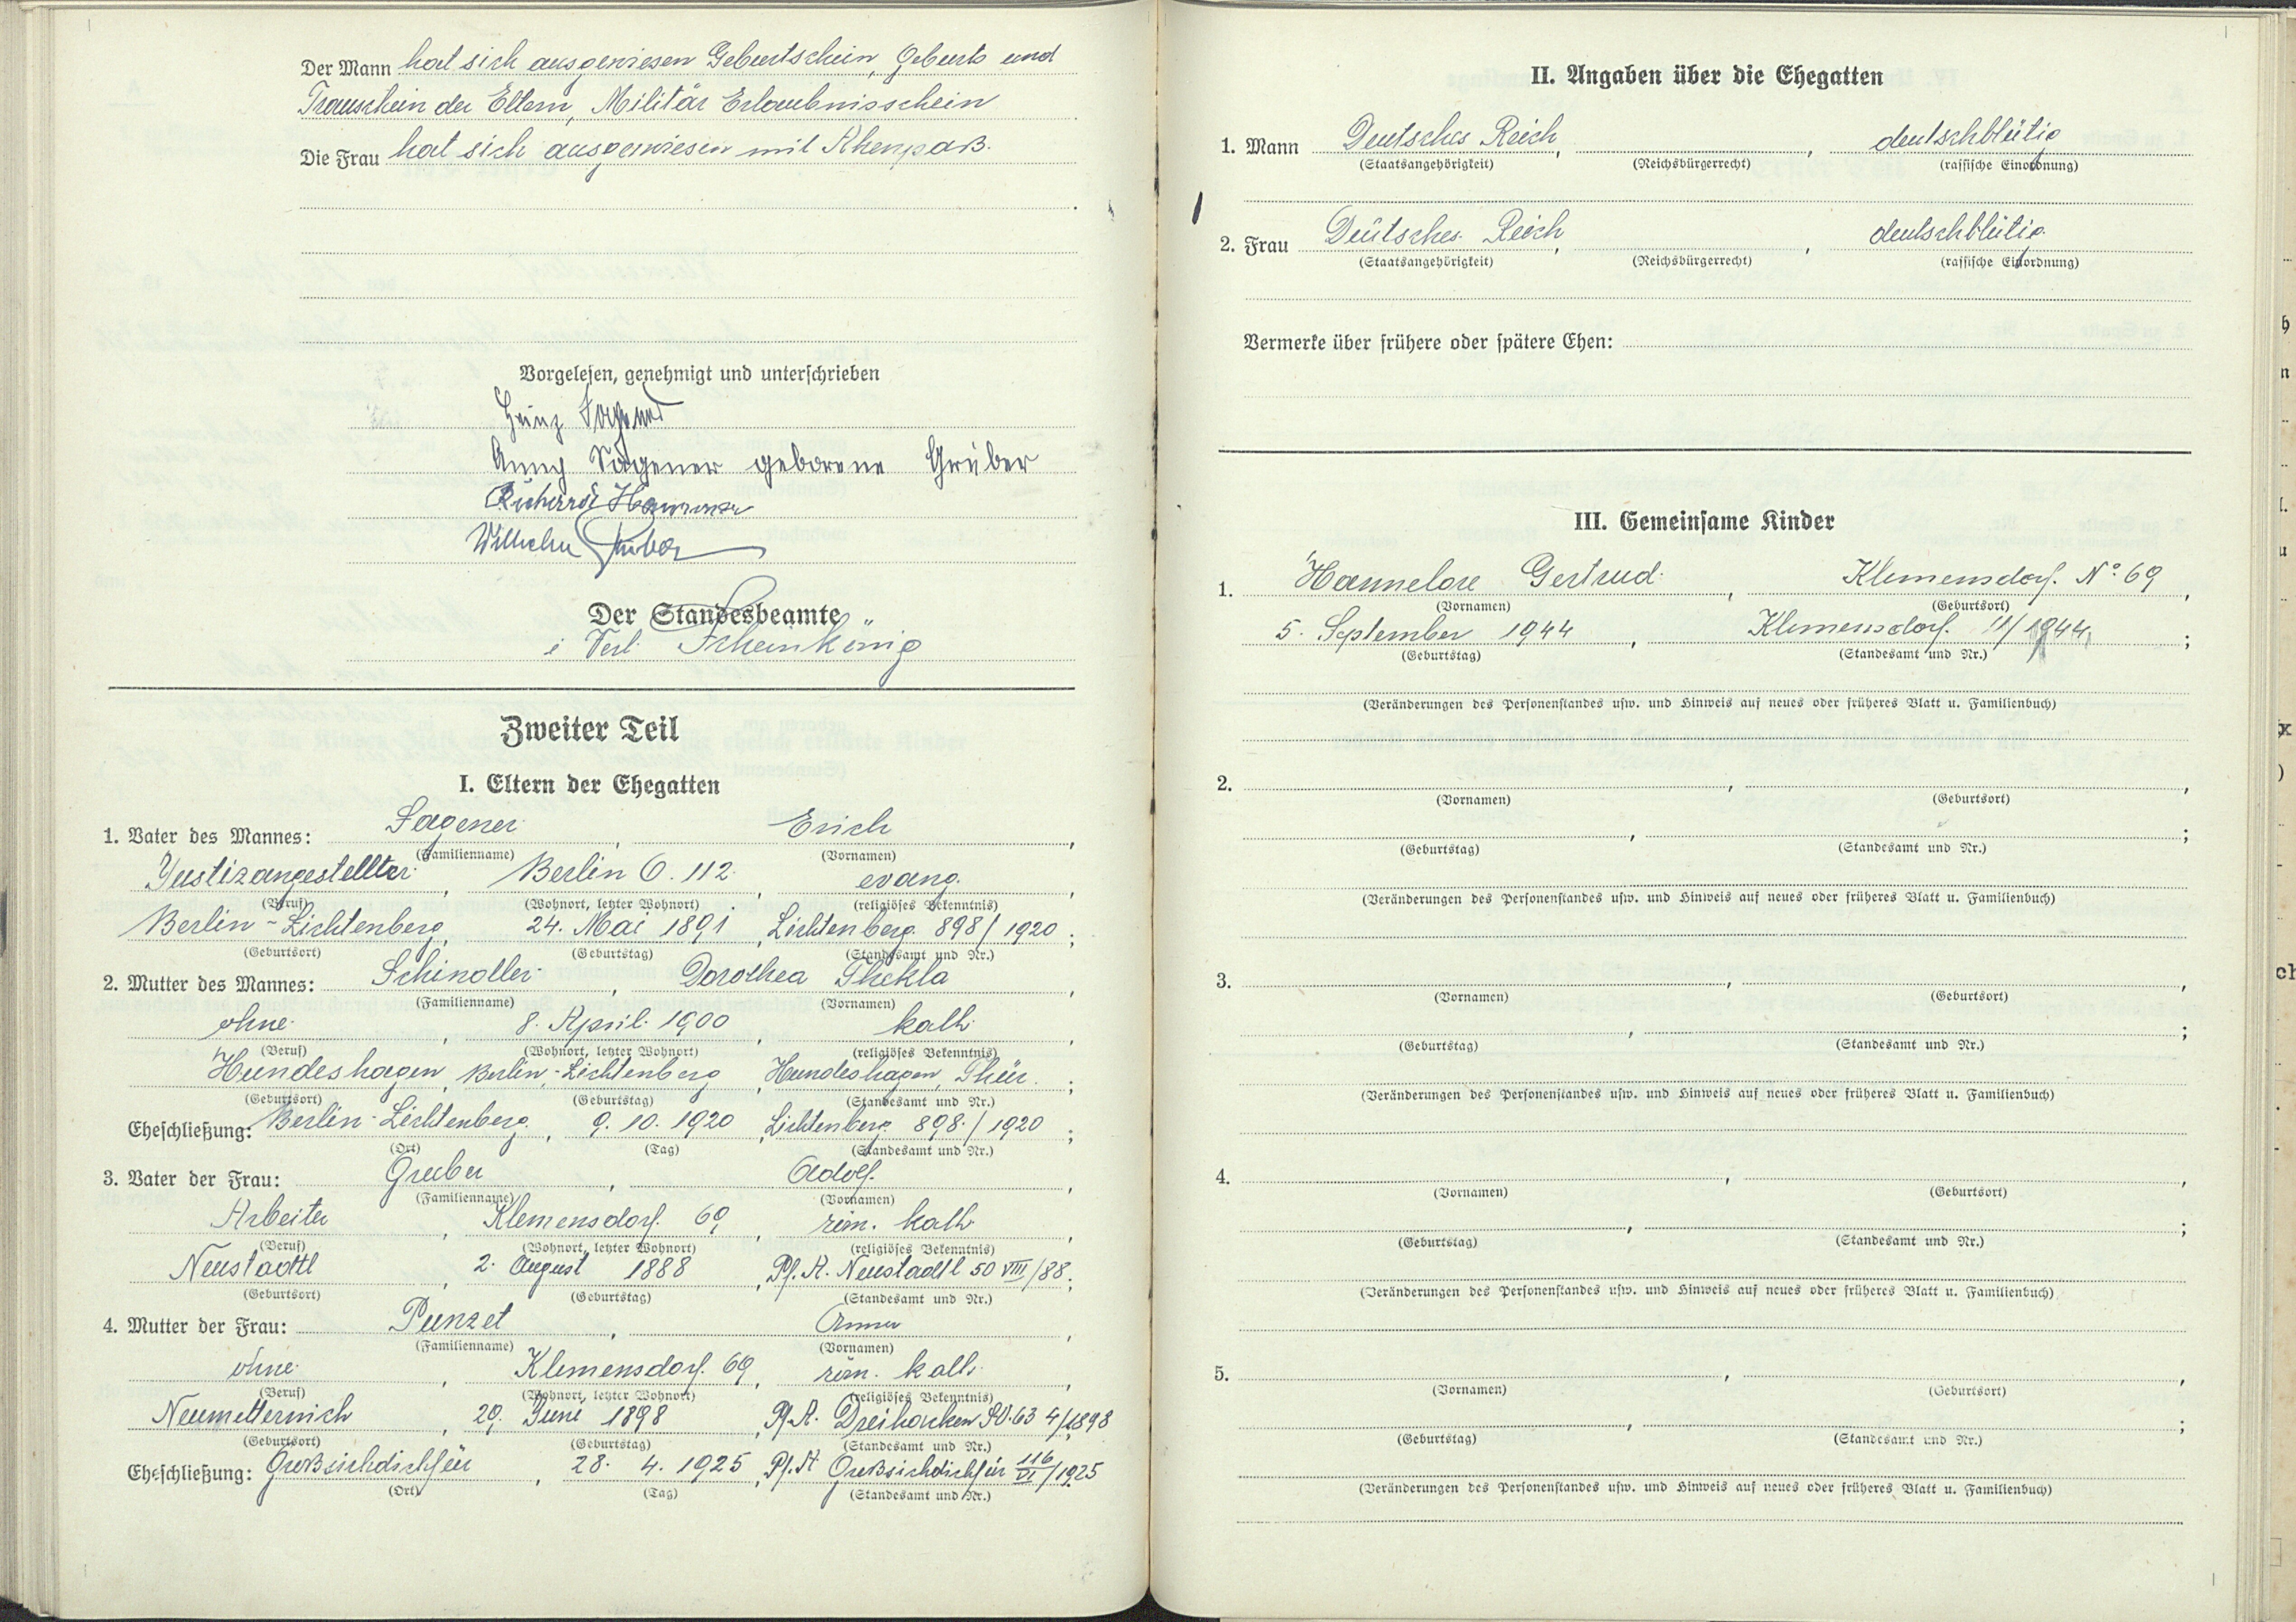 Der Mann hat sich ausgewiesen Geburtschein, Geburts und
Trauschein der Eltern, Militär Erlaubnisschein
Die Frau hat sich ausgewiesen mit Ahenpaß.
Vorgelesen, genehmigt und unterschrieben
Heinz Sagener
Anny Sagener geborene Gruber
Richard Hammer
Wilhelm Gruber
Der Standesbeamte
i Vert. Scheinkönig
Zweiter Teil
I. Eltern der Ehegatten
1. Vater des Mannes: Sagener, Erich,
(Familienname) (Vornamen)
Justizangestellter, Berlin O. 112, evang.,
(Beruf) (Wohnort, letzter Wohnort) (religiöses Bekenntnis)
Berlin-Lichtenberg, 24. Mai 1891, Lichtenberg 898/1920;
(Geburtsort) (Geburtstag) (Standesamt und Nr.)
2. Mutter des Mannes: Schindler, Dorothea Thekla,
(Familienname) (Vornamen)
ohne, 8. April 1900, kath.,
(Beruf) (Wohnort, letzter Wohnort) (religiöses Bekenntnis)
Hundeshagen, Berlin-Lichtenberg, Hundeshagen, Thür.;
(Geburtsort) (Geburtstag) (Standesamt und Nr.)
Eheschließung: Berlin-Lichtenberg, 9. 10. 1920, Lichtenberg 898/1920;
(Ort) (Tag) (Standesamt und Nr.)
3. Vater der Frau: Gruber, Adolf,
(Familienname) (Vornamen)
Arbeiter, Klemensdorf 69, röm. kath.,
(Beruf) (Wohnort, letzter Wohnort) (religiöses Bekenntnis)
Neustadtl, 2. August 1888, Pf. A. Neustadtl 50 VIII/88;
(Geburtsort) (Geburtstag) (Standesamt und Nr.)
4. Mutter der Frau: Punzet, Anna,
(Familienname) (Vornamen)
ohne, Klemensdorf 69, röm. kath.,
(Beruf) (Wohnort, letzter Wohnort) (religiöses Bekenntnis)
Neumetternich, 29. Juni 1898, Pf. A. Dreihacken 63 4/1898
(Geburtsort) (Geburtstag) (Standesamt und Nr.)
Eheschließung: Großsichdichfür, 28. 4. 1925, Pf. A Großsichdichfür 116/VI/1925
(Ort) (Tag) (Standesamt und Nr.)
II. Angaben über die Ehegatten
1. Mann Deutsches Reich, , deutschblütig
(Staatsangehörigkeit) (Reichsbürgerrecht) (rassische Einordnung)
2. Frau Deutsches Reich, , deutschblütig
(Staatsangehörigkeit) (Reichsbürgerrecht) (rassische Einordnung)
Vermerke über frühere oder spätere Ehen:
III. Gemeinsame Kinder
1. Hannelore Gertrud, Klemensdorf No. 69,
(Vornamen) (Geburtsort)
5. September 1944, Klemensdorf 11/1944;
(Geburtstag) (Standesamt und Nr.)
(Veränderungen des Personenstandes usw. und Hinweis auf neues oder früheres Blatt u. Familienbuch)
2. , ,
(Vornamen) (Geburtsort)
, ;
(Geburtstag) (Standesamt und Nr.)
(Veränderungen des Personenstandes usw. und Hinweis auf neues oder früheres Blatt u. Familienbuch)
3. , ,
(Vornamen) (Geburtsort)
, ;
(Geburtstag) (Standesamt und Nr.)
(Veränderungen des Personenstandes usw. und Hinweis auf neues oder früheres Blatt u. Familienbuch)
4. , ,
(Vornamen) (Geburtsort)
, ;
(Geburtstag) (Standesamt und Nr.)
(Veränderungen des Personenstandes usw. und Hinweis auf neues oder früheres Blatt u. Familienbuch)
5. , ,
(Vornamen) (Geburtsort)
, ;
(Geburtstag) (Standesamt und Nr.)
(Veränderungen des Personenstandes usw. und Hinweis auf neues oder früheres Blatt u. Familienbuch)